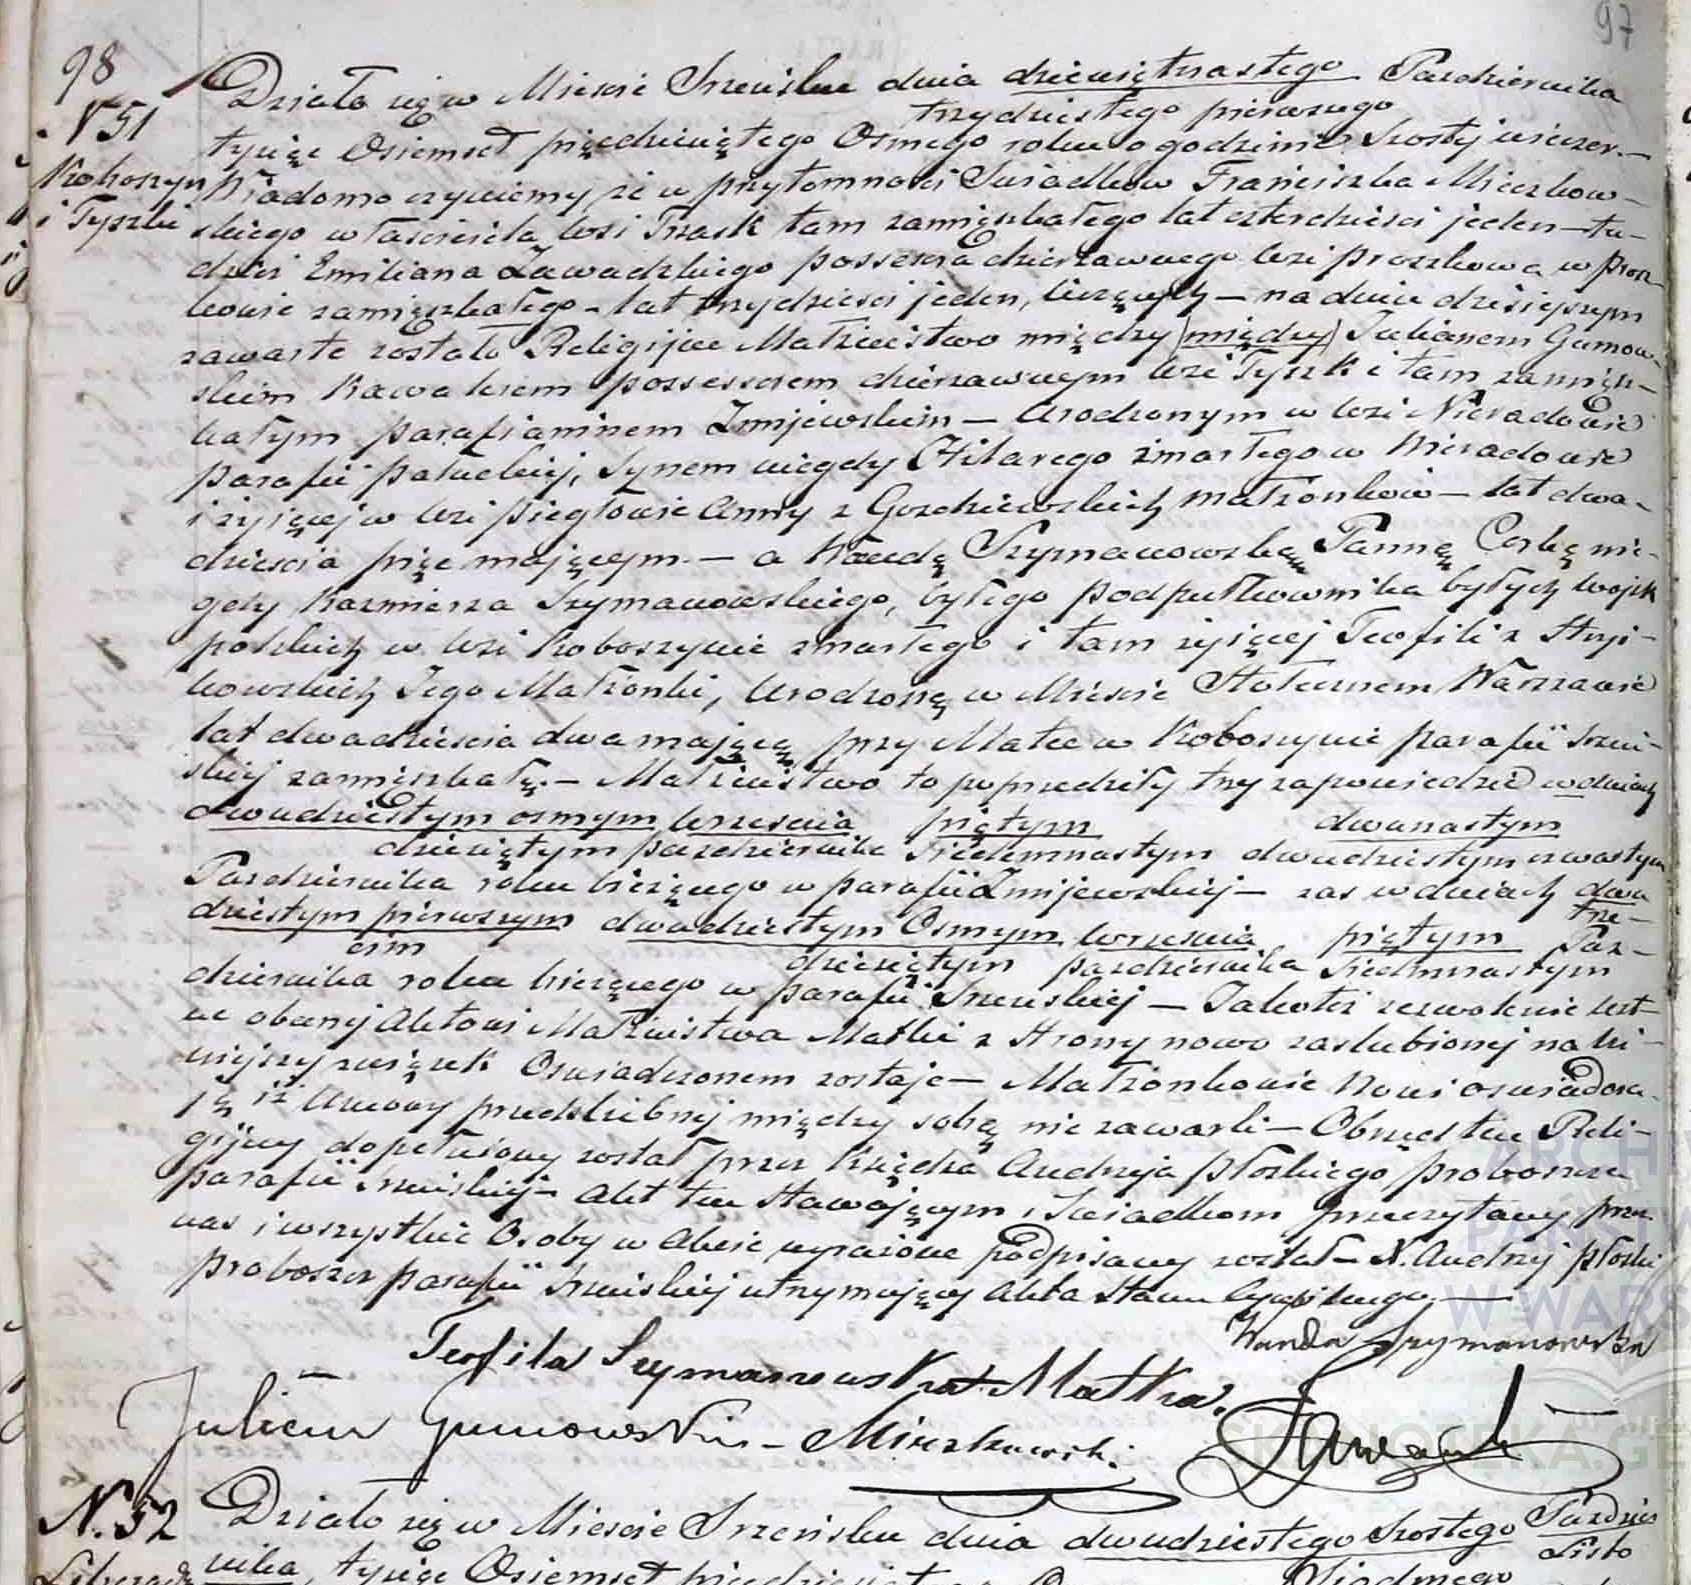 97
98
N 51
Koboszyn
i Tyszki
Działo się w Mieście Szreńsku dnia dziewiętnastego Pazdziernika
trzydziestego pierwszego
tysiąc Ośiemset pięcdziesiątego Osmego roku o godzinie Szosty wieczor-
Wiadomo czyniemy że w przytomnosci Swiadkow Franciszka Mieczkow-
skiego własciciela wsi Trzask tam zamięszkałego lat czterdziesci jeden - tu-
dzież Emiliana Zawadzkiego possesora dzierzawnego wsi Proszkowa w Prosz
kowie zamięszkałego - lat trzydziesci jeden, liczących - na dniu dzisieyszym
zawarte zostało Religijne Małżeństwo między (między) Julianem Gumow-
skim Kawalerem possessorem dzierzawnym wsi Tyszk i tam zamięsz-
kałym parafianinem Żmijewskim - Urodzonym w wsi Nieradowie
parafii pałuckiej, Synem niegdy Hilarego zmarłego w Nieradowie
i żyiącej w wsi Pięgłowie Anny z Gozdziewskich małżonkow - lat dwa-
dziescia pięc mającym - a Wandą Szymanowską Panną Corką nie-
gdy Kazmierza Szymanowskiego, byłego podpułkownika byłych wojsk
polskich w wsi Koboszynie zmarłego i tam żyiącej Teofili z Stryi-
kowskich Jego Małżonki, Urodzoną w Mieście Stołecznem Warszawie
lat dwadziescia dwa mającą przy Matce w Koboszynie parafii Szreń-
skiej zamięszkałą. - Małżeństwo to poprzedziły trzy zapowiedzie w dniach
dwudziestym osmym wrzesnia piętym dwunastym
dziesiętym pazdziernika siedemnastym dwudziestym czwartym
Pazdziernika roku bieżącego w parafii Żmijewskiej - zas w dniach dwu
dziestym pierwszym dwudziestym Osmym wrzesnia piętym Paz-
trze-
cim dziesiętym pazdziernika siedmnastym
dziernika roku bieżącego w parafii Szreńskiej - Jakoteż zezwolenie ust-
ne obecnej Aktowi Małżeństwa Matki z strony nowo zaslubionej na ni-
niejszy związek Oswiadczonem zostaje - Małżonkowie Nowi oswiadcza-
ją iż Umowy przedślubnej między sobą nie zawarli - Obrządek ten Reli-
gijny dopełniony został przez Księdza Andrzeja Płoskiego proboszcza
parafii Szreńskiej - Akt ten stawającym i Swiadkom przeczytany przez
nas i wszystkie Osoby w Akcie wyrażone podpisany został - X. Andrzej Płoski
proboszcz parafii Szreńskiej utrzymujący Akta stanu Cywilnego. -
Wanda Szymanowska
Teofila Szymanowska Matka.
Julian Gumowski - Mieczkowski.
Zawadzki
N. 52
Działo się w Mieście Szreńsku dnia dwudziestego szostego Pazdzier
Listo
nika, tysiąc Osiemset
Siodmego
ARCHIW
PAŃSTW
W WARS
SKANOTEKA.GE